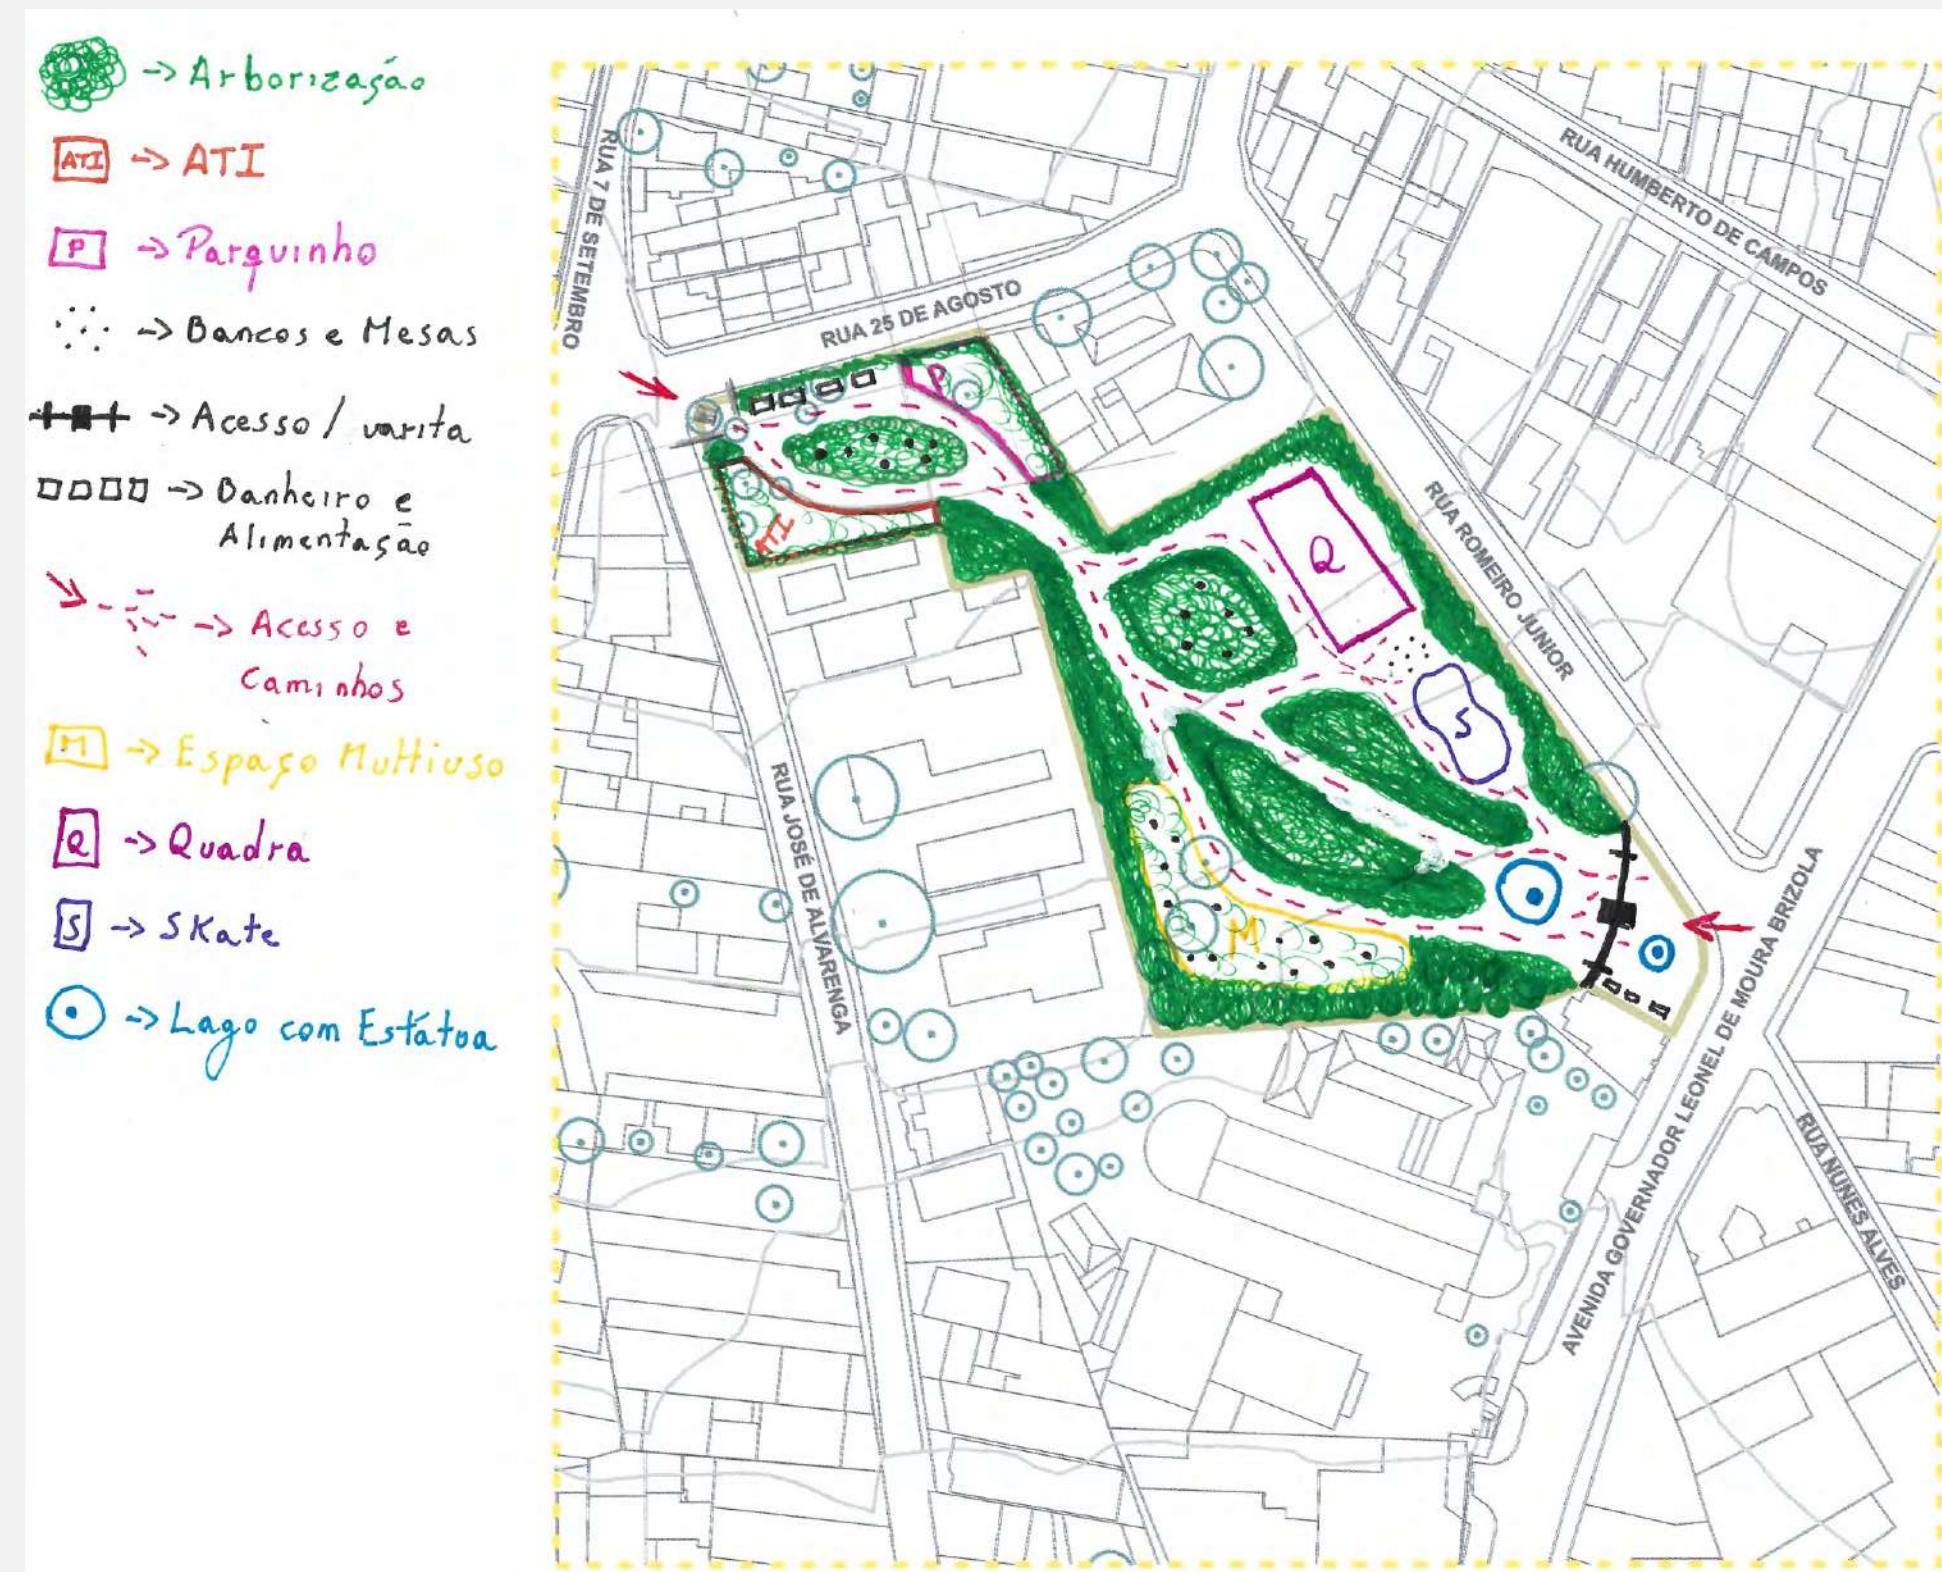 -> Arborização
ATI -> ATI
P -> Parquinho
-> Bancos e Mesas
-> Acesso / varita
-> Banheiro e
Alimentação
-> Acesso e
Caminhos
M -> Espaço Multiuso
Q -> Quadra
S -> Skate
-> Lago com Estátua
RUA 7 DE SETEMBRO
RUA 25 DE AGOSTO
RUA HUMBERTO DE CAMPOS
RUA ROMEIRO JUNIOR
RUA JOSÉ DE ALVARENGA
AVENIDA GOVERNADOR LEONEL DE MOURA BRIZOLA
RUA NUNES ALVES
P
ATI
Q
S
M